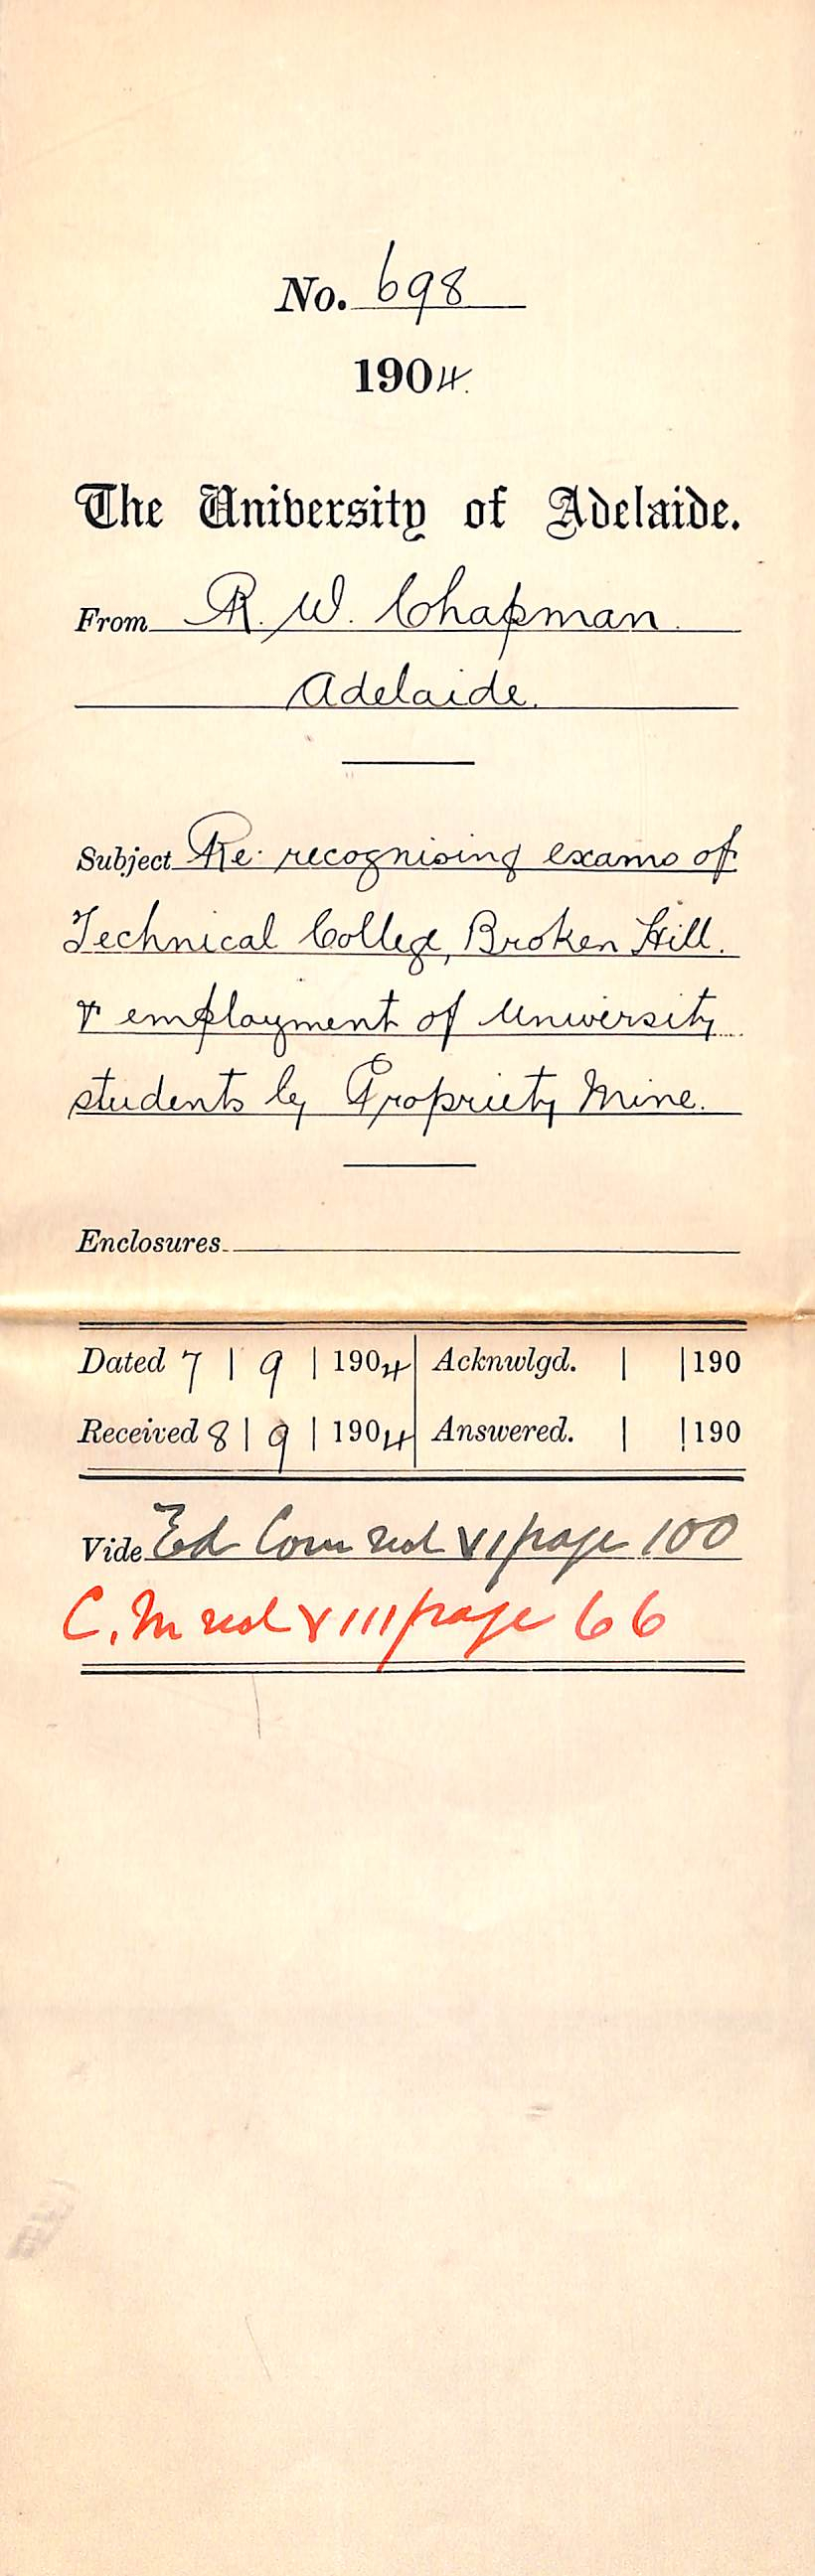 No. 698
1904.
The University of Adelaide.
From R. W. Chapman.
Adelaide.
Subject Re recognising exams of
Technical College, Broken Hill.
& employment of University
students by Propriety Mine.
Enclosures
Dated 7 | 9 | 1904 Acknwlgd. | | 190
Received 8 | 9 | 1904 Answered. | | 190
Vide Ed Com vol VI page 100
C. M vol VIII page 66